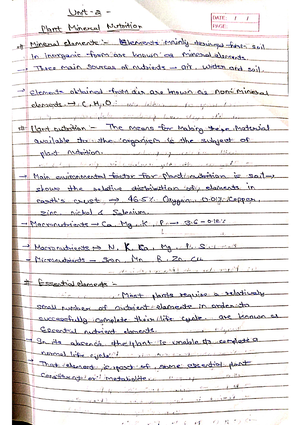 Unit-3 -
Plant Mineral Nutrition
DATE
PAGE
Mineral elements :- Elements mainly derived from soil
in inorganic form are known as mineral elements.
→ Three main sources of nutrients - air, water and soil.
→ Elements obtained from air are known as non mineral
elements → C, H, O.
Plant nutrition - The means for making these material
available to the organism is the subject of
plant nutrition.
→ Main environmental factor for plant nutrition is soil
shows the relative distribution of elements in
earth's crust → 46.5% Oxygen, 0.01% Copper
zinc, nickel & Selenium.
→ Macronutrients → Ca, Mg, K, P →
→ Macronutrients → N, K, Ca, Mg, P, S
→ Micronutrients - Iron, Mn, B, Zn, Cu
Essential elements :-
Most plants require a relatively
small number of nutrient elements in order to
successfully complete their life cycle are known as
Essential nutrient elements.
→ In its absence the plant is unable to complete a
normal life cycle.
→ That element is part of some essential plant
constituent or metabolite.